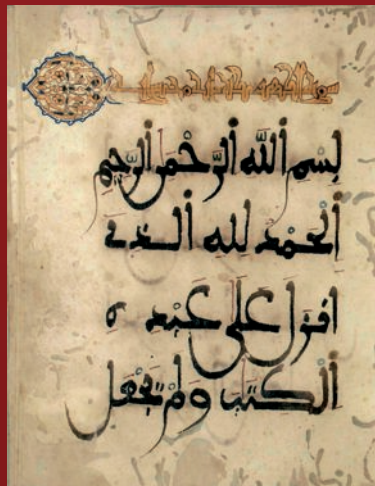 سورة الكهف
بِسْمِ اللَّهِ الرَّحْمٰنِ الرَّحِيمِ
اَلْحَمْدُ لِلّٰهِ الَّذِى
اَنْزَلَ عَلَى عَبْدِهِ
اَلْكِتٰبَ وَلَمْ يَجْعَل